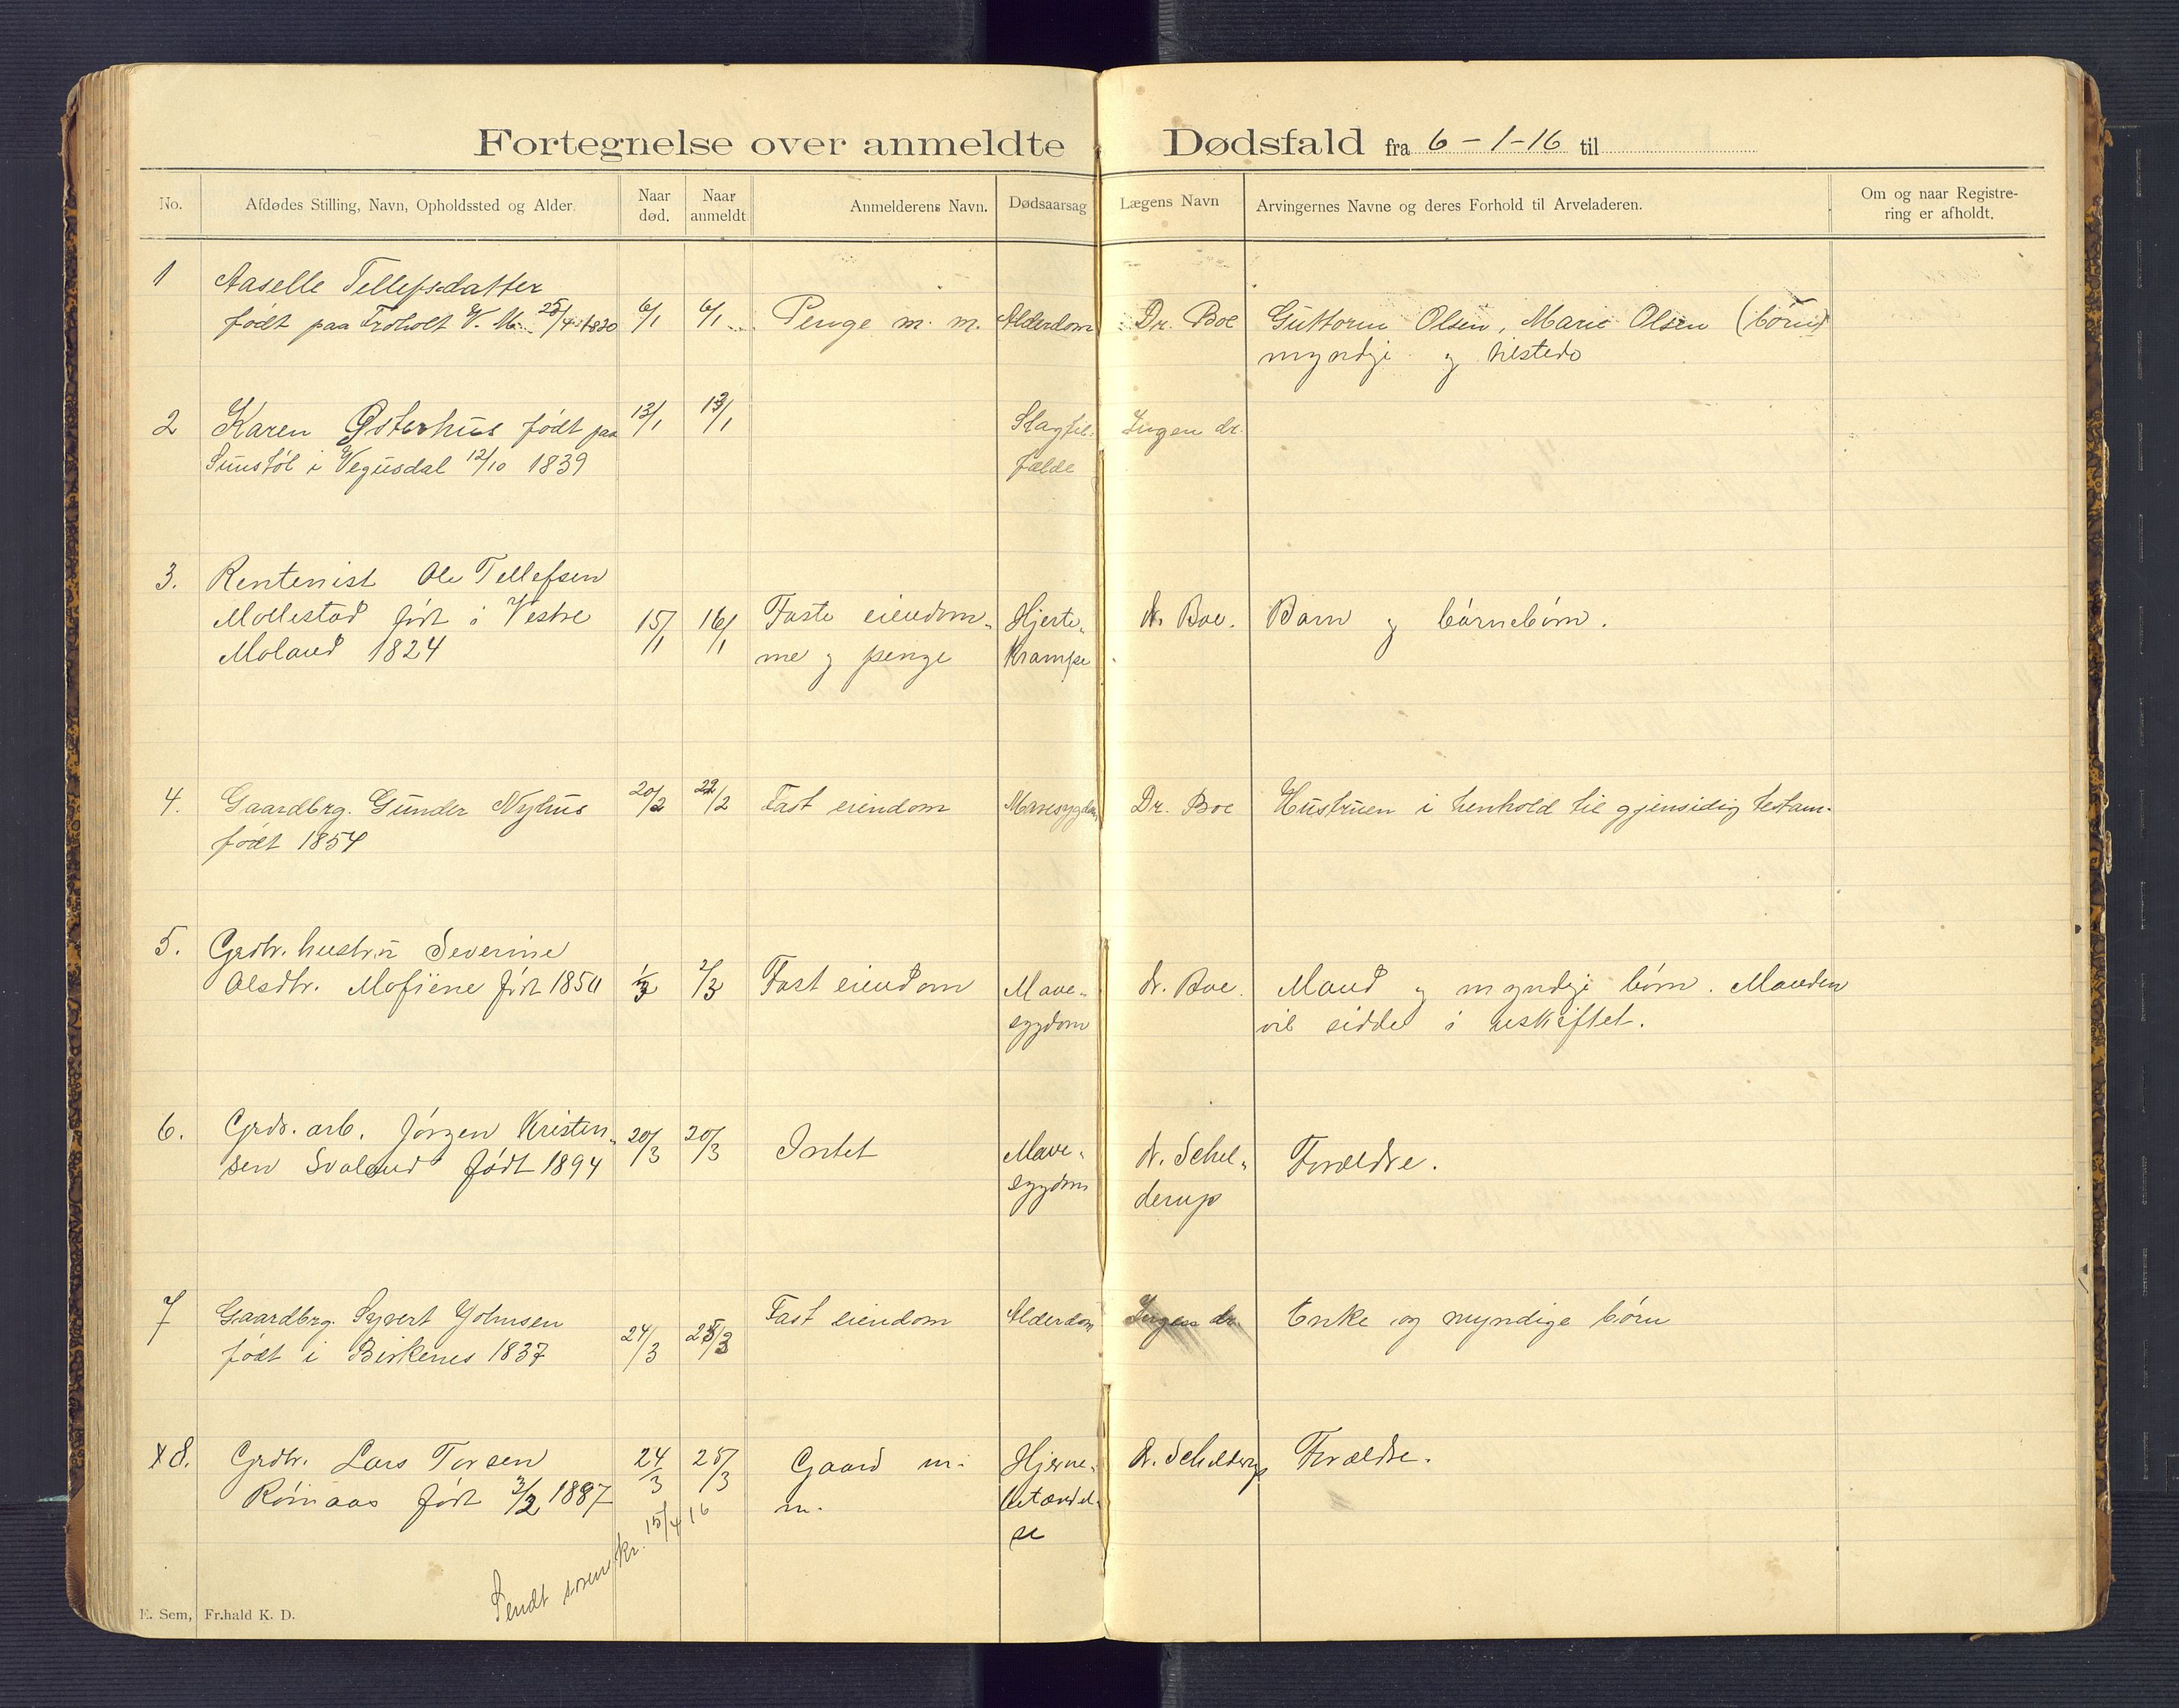 Fortegnelse over anmeldte Dødsfald fra 6-1-16 til
No. Afdødes Stilling, Navn, Opholdssted og Alder. Naar død. Naar anmeldt Anmelderens Navn. Dødsaarsag Lægens Navn Arvingernes Navne og deres Forhold til Arveladeren. Om og naar Registre-
ring er afholdt.
1 Aaselle Tellefsdatter
født paa Froholt V. M. 25/4 1830 6/1 6/1 Penge m. m. Alderdom Dr. Boe Guttorm Olsen, Marie Olsen (børn)
myndji og tilstede
2 Karen Østerhus født paa 13/1 13/1 Slagtil- Ingen dr.
Sunstøl i Vegusdal 12/10 1839 fælde
3. Rentenist Ole Tellefsen
Mollestad født i Vestre 15/1 16/1 Faste eiendom- Hjerte- dr. Boe. Barn og barnebørn.
Moland 1824 me og penge Krampe
4. Gaardbrg. Gunder Nyhus 20/2 22/2 Fast eiendom Mavesygdom Dr. Boe Hustruen i henhold til gjensidig testam.
født 1854
5. Grdbr. hustru Severine
Olsdtr. Mofiene født 1850 1/3 2/3 Fast eiendom Mave- dr. Boe. Mand og myndige børn. Manden
sygdom vil sidde i uskiftet.
6. Grds. arb. Jørgen Kristen- 20/3 20/3 Intet Mave- dr. Schel- Forældre.
sen Svaland født 1894 sygdom derup
7 Gaardbrg. Syvert Johnsen 24/3 25/3 Fast eiendom Alderdom Ingen dr. Enke og myndige børn
født i Birkenes 1837
x8. Grdbr. Lars Torsen 24/3 25/3 Gaard m. Hjerne- dr. Schelderup Forældre.
Rømaas født 3/2 1887 m. betændel-
se
Sendt soren kr. 15/4 16
E. Sem, Fr.hald K. D.